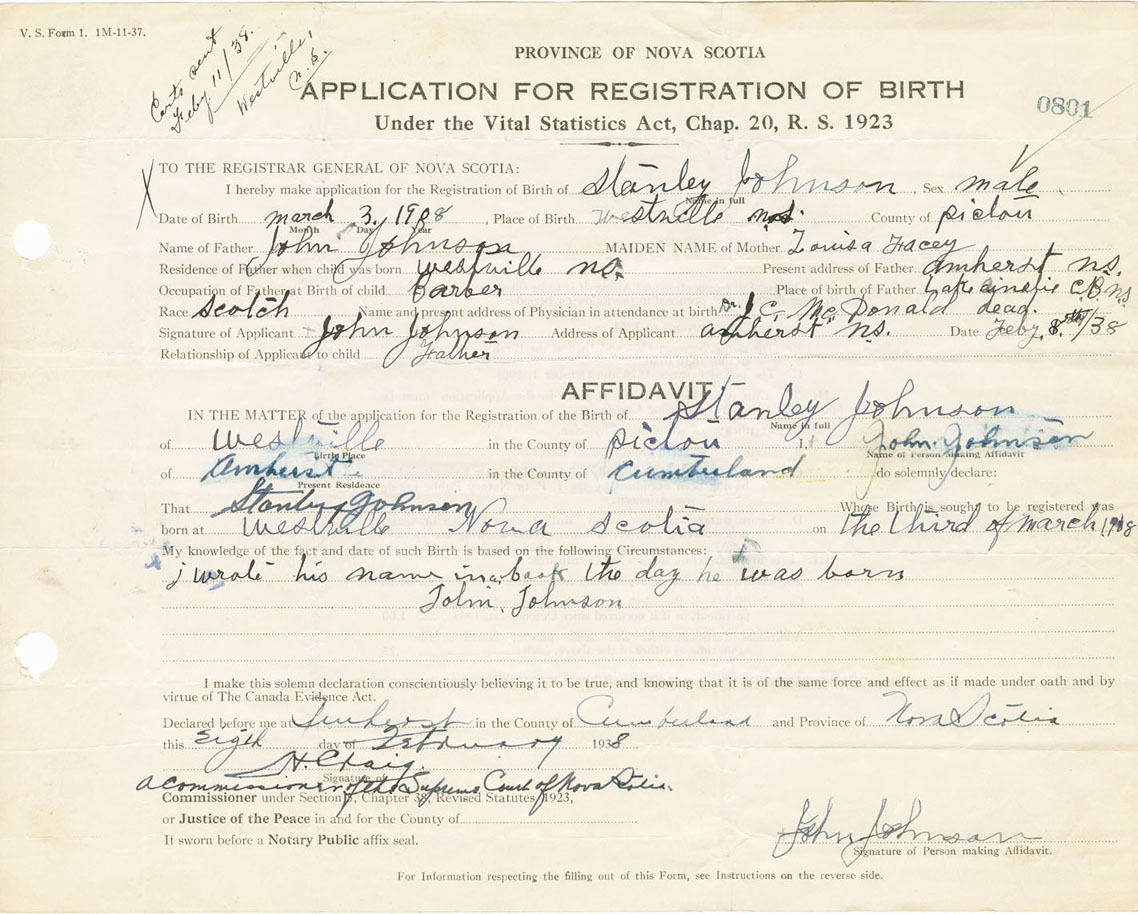 V. S. Form 1. 1M-11-37.
Certs sent
Feby 11/38.
Westville,
N.S.
PROVINCE OF NOVA SCOTIA
APPLICATION FOR REGISTRATION OF BIRTH
0801
Under the Vital Statistics Act, Chap. 20, R. S. 1923
X TO THE REGISTRAR GENERAL OF NOVA SCOTIA:
I hereby make application for the Registration of Birth of Stanley Johnson, Sex male
Name in full
Date of Birth march 3, 1908, Place of Birth Westville n.s. County of pictou
Month Day Year
Name of Father John Johnson MAIDEN NAME of Mother Louisa Facey
Residence of Father when child was born westville ns. Present address of Father amherst ns.
Occupation of Father at Birth of child Barber Place of birth of Father Lake ainslie C.B. ns.
Race Scotch Name and present address of Physician in attendance at birth Dr. J. C. McDonald dead.
Signature of Applicant John Johnson Address of Applicant amherst ns. Date Feby, 8th/38
Relationship of Applicant to child Father
AFFIDAVIT
IN THE MATTER of the application for the Registration of the Birth of Stanley Johnson
Name in full
of Westville in the County of pictou I, John Johnson
Birth Place Name of Person Making Affidavit
of Amherst in the County of Cumberland do solemnly declare:
Present Residence
That Stanley Johnson Whose Birth is sought to be registered was
born at Westville Nova Scotia on the third of march 1908
My knowledge of the fact and date of such Birth is based on the following Circumstances:
j wrote his name in a book the day he was born
John Johnson
I make this solemn declaration conscientiously believing it to be true, and knowing that it is of the same force and effect as if made under oath and by
virtue of The Canada Evidence Act.
Declared before me at Amherst in the County of Cumberland and Province of Nova Scotia
this eigth day of February 1938
H. Craig.
Signature of
a commissioner of the Supreme Court of Nova Scotia.
Commissioner under Section 3, Chapter 38, Revised Statutes 1923,
or Justice of the Peace in and for the County of
It sworn before a Notary Public affix seal.
John Johnson
Signature of Person making Affidavit.
For Information respecting the filling out of this Form, see Instructions on the reverse side.